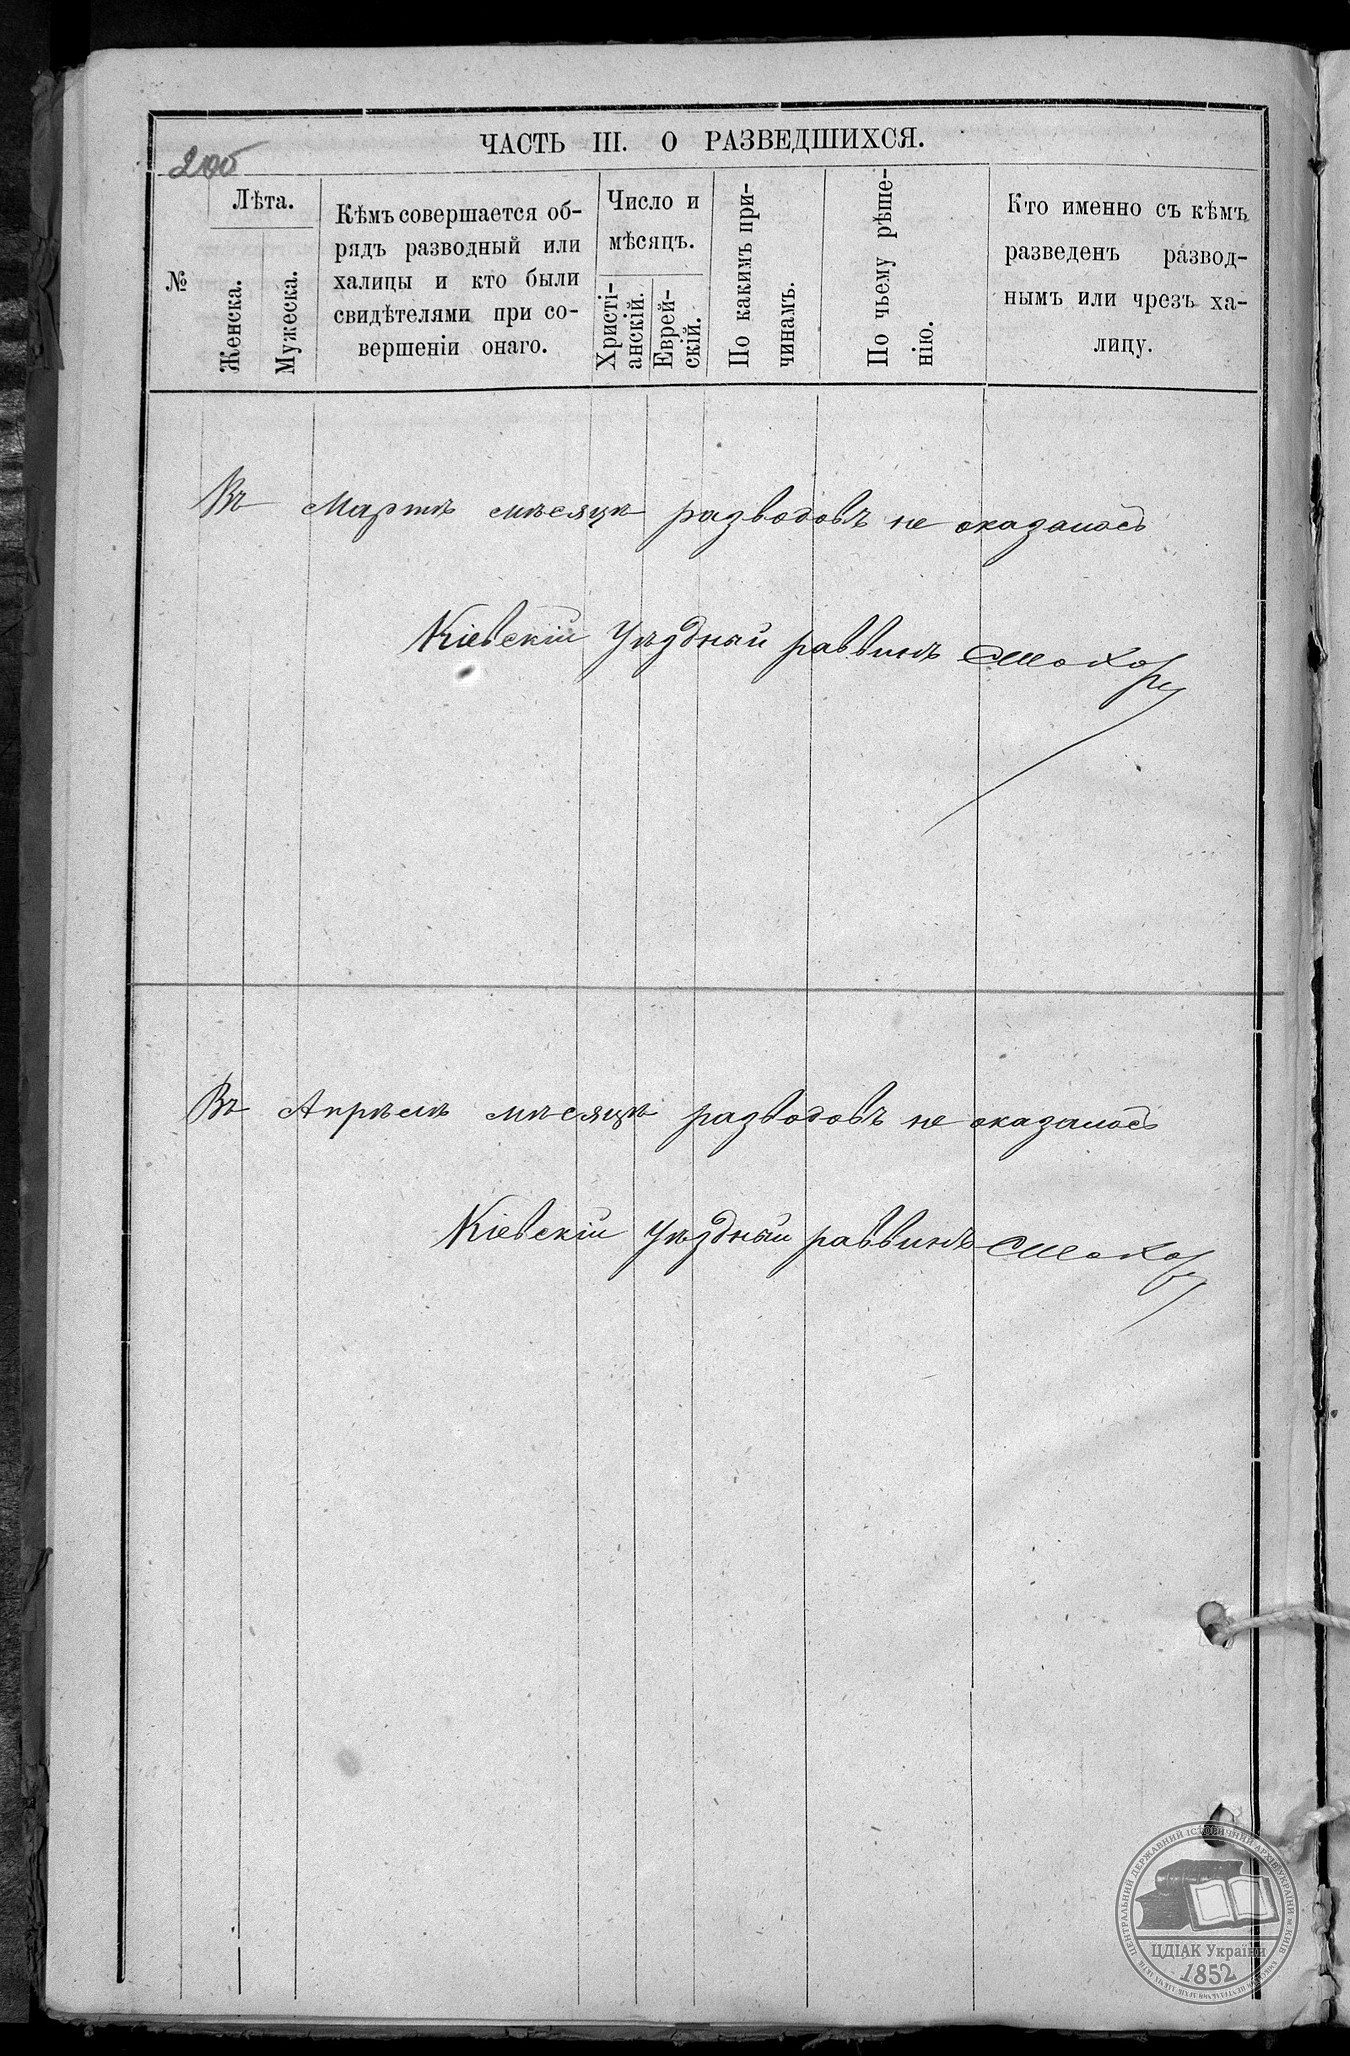 ЧАСТЬ III. О РАЗВЕДШИХСЯ.
№
Лѣта.
Женска.
Мужеска.
Кѣмъ совершается об-
рядъ разводный или
халицы и кто были
свидѣтелями при со-
вершеніи онаго.
Число и
мѣсяцъ.
Христі-
анскій.
Еврей-
скій.
По какимъ при-
чинамъ.
По чьему рѣше-
нію.
Кто именно съ кѣмъ
разведенъ развод-
нымъ или чрезъ ха-
лицу.
Въ Мартѣ мѣсяцѣ разводовъ не оказалось
Кіевскій Уѣздный раввинъ
Въ Апрѣлѣ мѣсяцѣ разводовъ не оказалось
Кіевскій Уѣздный раввинъ
ЦЕНТРАЛЬНИЙ ДЕРЖАВНИЙ ІСТОРИЧНИЙ АРХІВ УКРАЇНИ м. КИЇВ
ЦДІАК України
1852